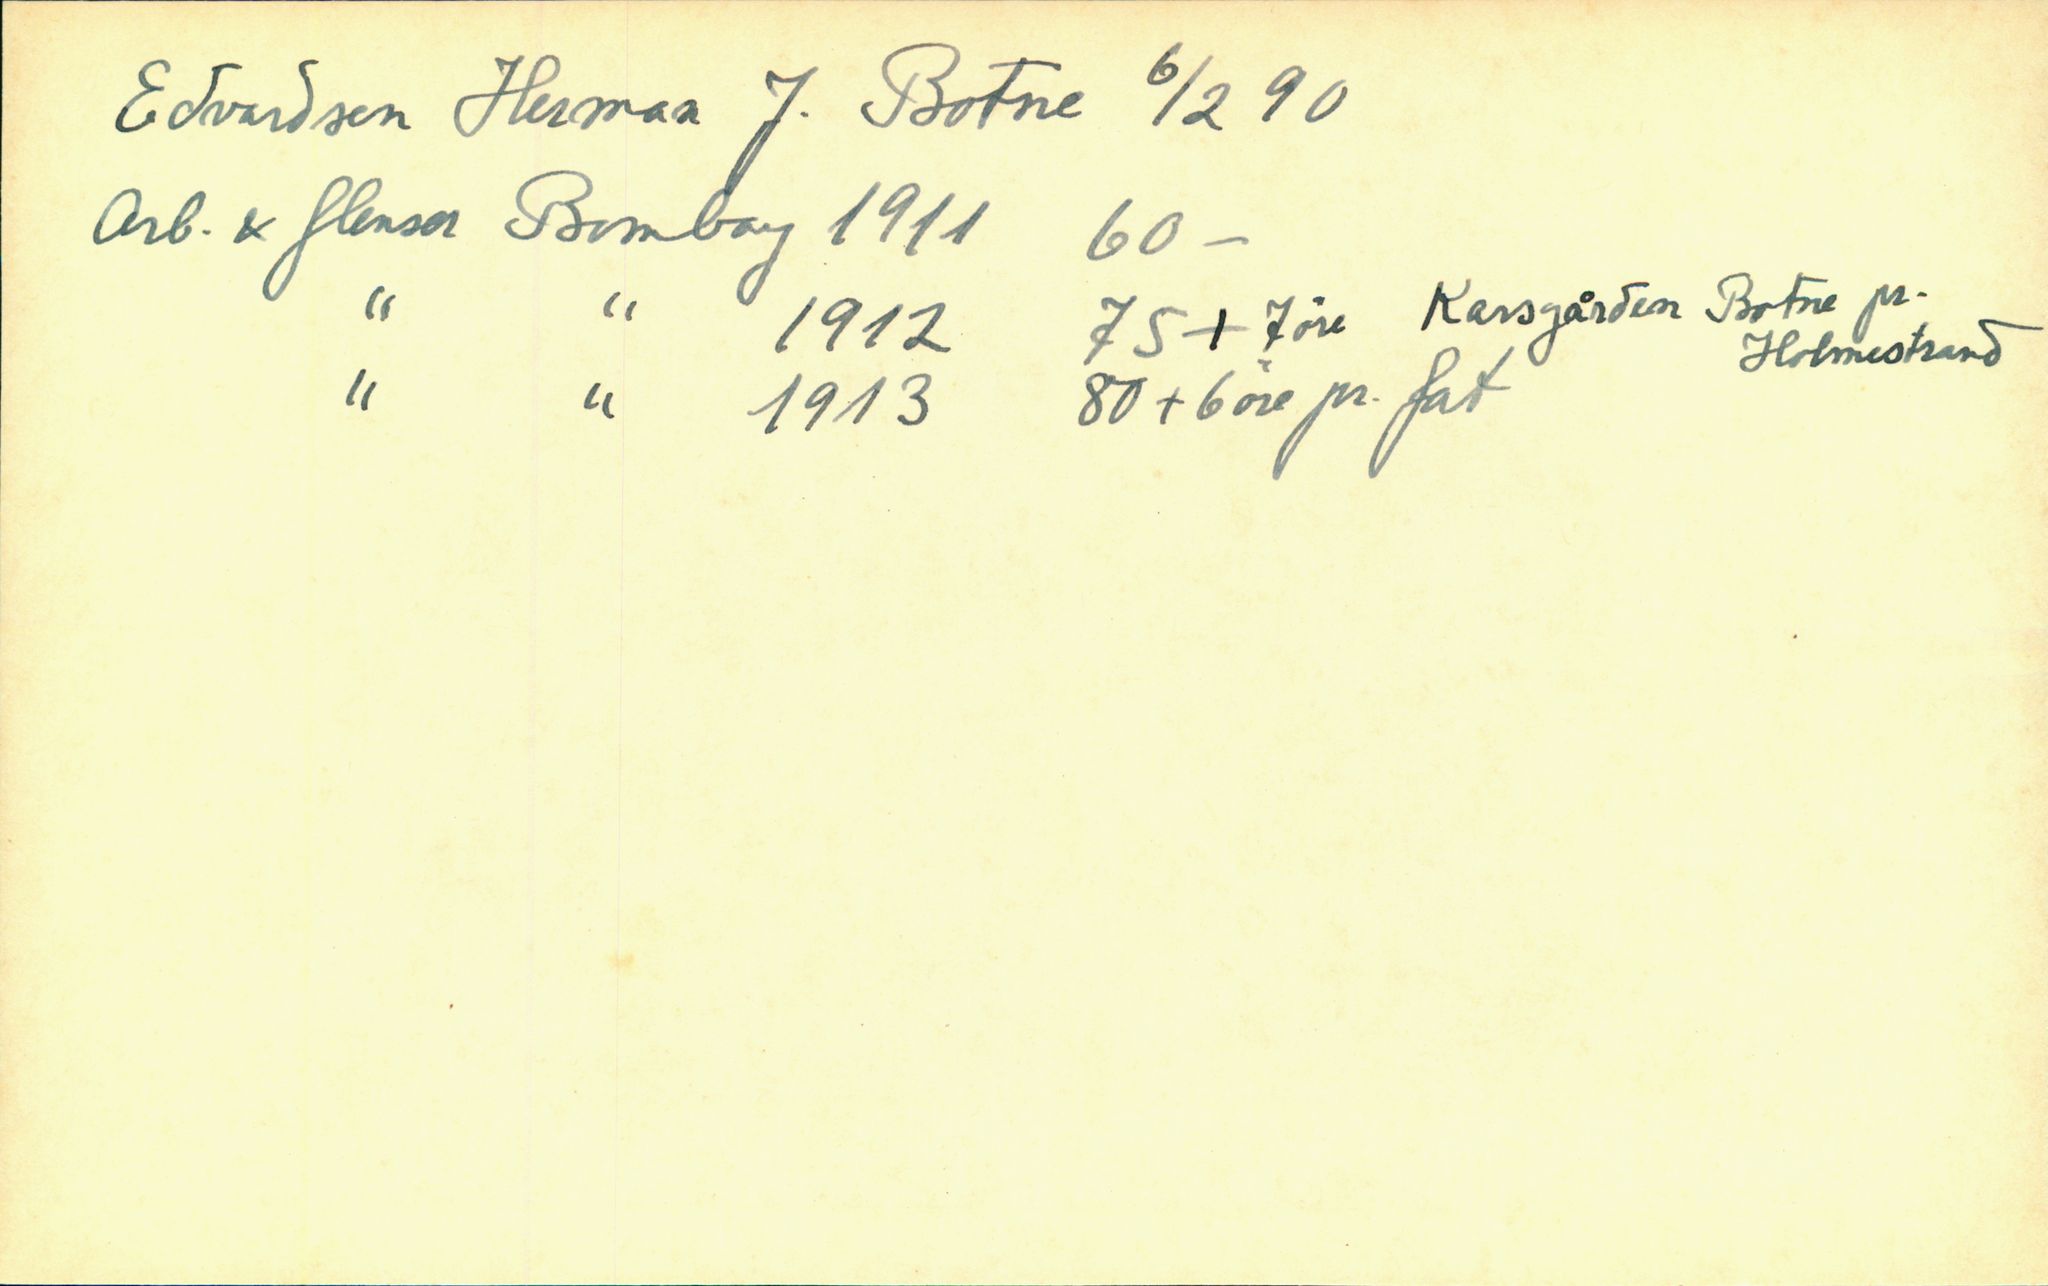 Edvardsen Herman J. Botne 6/2 90
Arb. & flenser Bombay 1911 60 –
" " 1912 75 + 7 öre Karsgården Botne pr.
Holmestrand
" " 1913 80 + 6 öre pr. fat